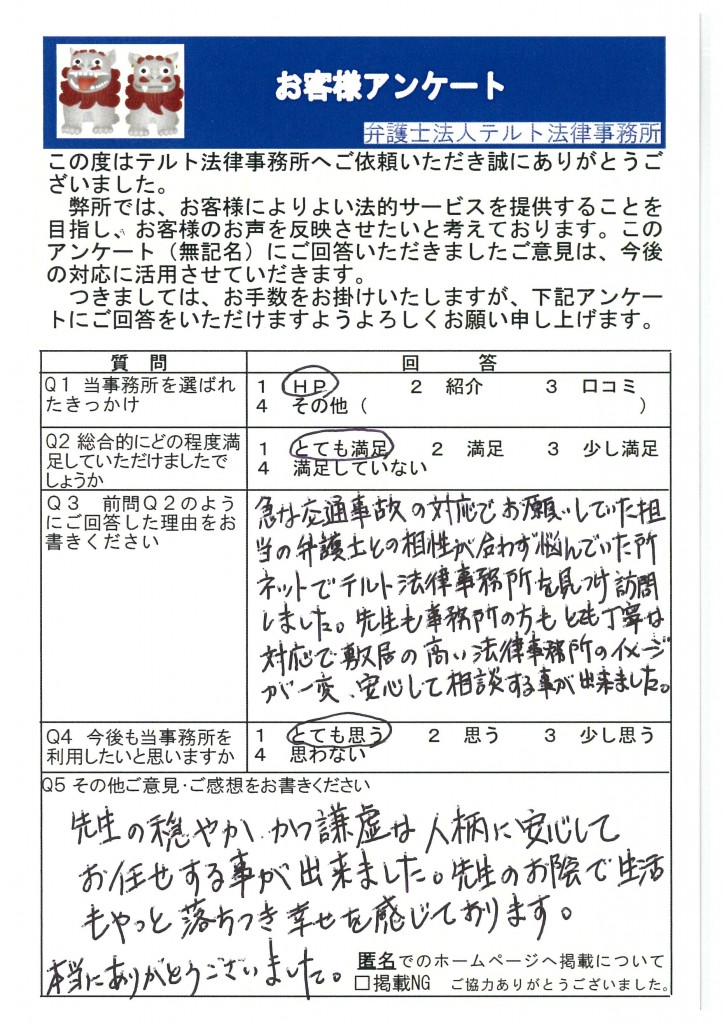 お客様アンケート
弁護士法人テルト法律事務所
この度はテルト法律事務所へご依頼いただき誠にありがとうご
ざいました。
弊所では、お客様によりよい法的サービスを提供することを
目指し、お客様のお声を反映させたいと考えております。この
アンケート（無記名）にご回答いただきましたご意見は、今後
の対応に活用させていだきます。
つきましては、お手数をお掛けいたしますが、下記アンケー
トにご回答をいただけますようよろしくお願い申し上げます。
質 問 回 答
Q1 当事務所を選ばれ
たきっかけ
1 HP 2 紹介 3 口コミ
4 その他（ ）
Q2 総合的にどの程度満
足していただけましたで
しょうか
1 とても満足 2 満足 3 少し満足
4 満足していない
Q3 前問Q2のよう
にご回答した理由をお
書きください
急な交通事故の対応でお願いしていた担
当の弁護士との相性が合わず悩んでいた所
ネットでテルト法律事務所を見つけ訪問
しました。先生も事務所の方もとても丁寧な
対応で敷居の高い法律事務所のイメージ
が一変、安心して相談する事が出来ました。
Q4 今後も当事務所を
利用したいと思いますか
1 とても思う 2 思う 3 少し思う
4 思わない
Q5 その他ご意見・ご感想をお書きください
先生の穏やか、かつ謙虚な人柄に安心して
お任せする事が出来ました。先生のお陰で生活
もやっと落ちつき幸せを感じております。
本当にありがとうございました。
匿名でのホームページへ掲載について
□掲載NG ご協力ありがとうございました。